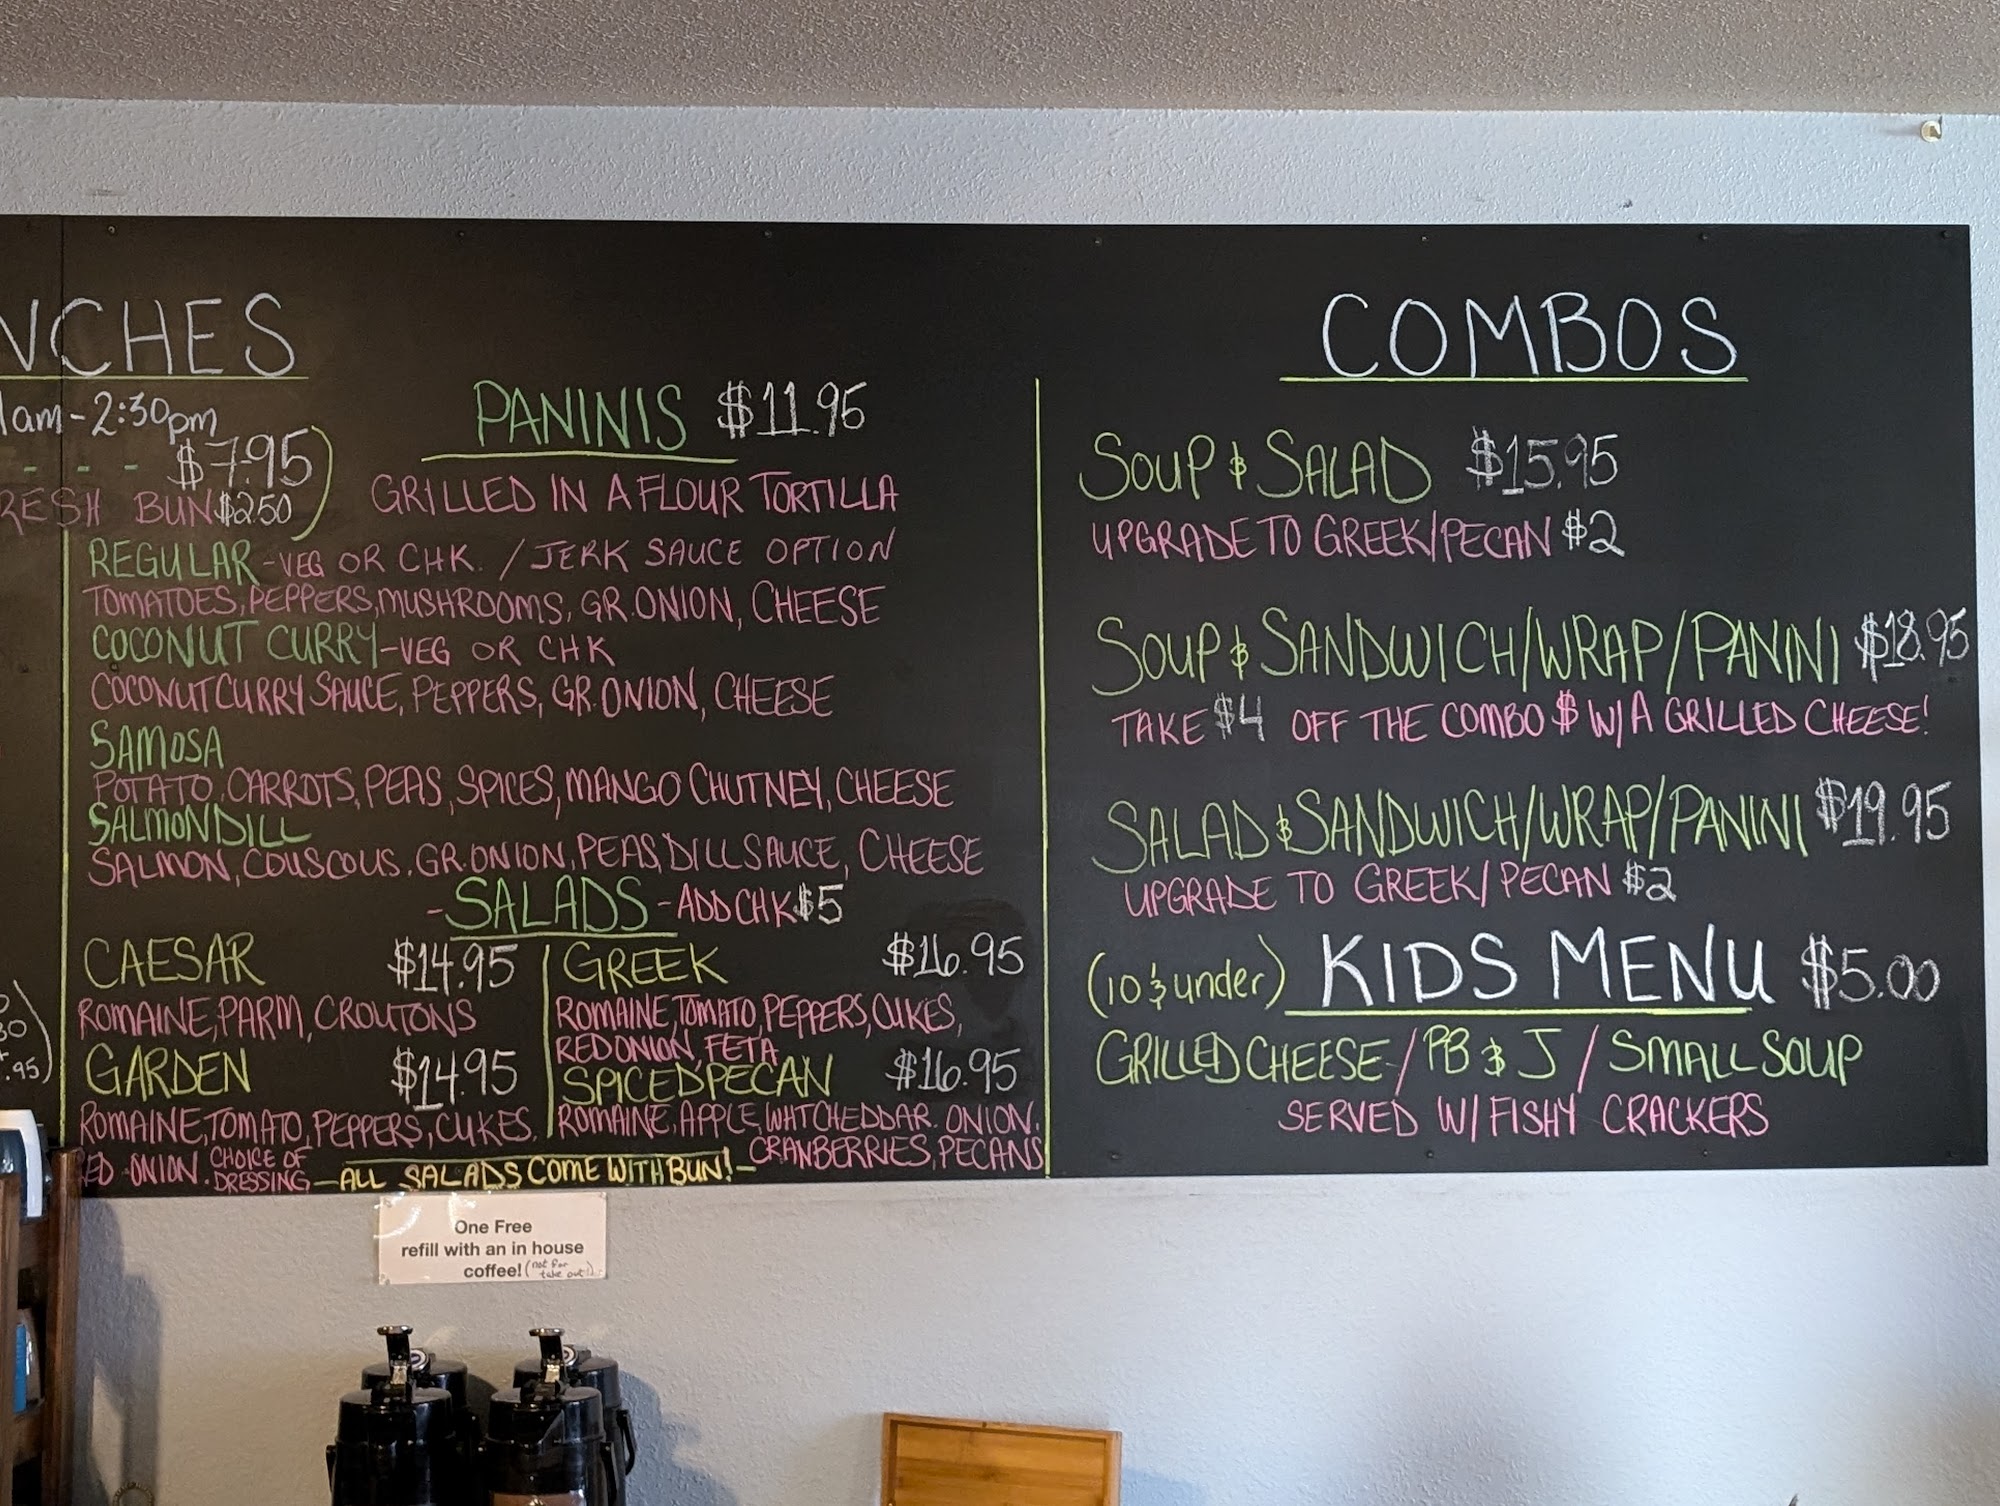 NCHES
1am - 2:30pm
- - - $7.95
RESH BUN $2.50
PANINIS $11.95
GRILLED IN A FLOUR TORTILLA
REGULAR - VEG OR CHK. / JERK SAUCE OPTION
TOMATOES, PEPPERS, MUSHROOMS, GR. ONION, CHEESE
COCONUT CURRY - VEG OR CHK
COCONUT CURRY SAUCE, PEPPERS, GR. ONION, CHEESE
SAMOSA
POTATO, CARROTS, PEAS, SPICES, MANGO CHUTNEY, CHEESE
SALMON DILL
SALMON, COUSCOUS. GR. ONION, PEAS, DILL SAUCE, CHEESE
- SALADS - ADD CHK $5
CAESAR $14.95
ROMAINE, PARM, CROUTONS
GARDEN $14.95
ROMAINE, TOMATO, PEPPERS, CUKES.
RED ONION. CHOICE OF
DRESSING
GREEK $16.95
ROMAINE, TOMATO, PEPPERS, CUKES,
RED ONION, FETA
SPICED PECAN $16.95
ROMAINE, APPLE, WHT CHEDDAR. ONION.
CRANBERRIES, PECANS
- ALL SALADS COME WITH BUN! -
COMBOS
SOUP & SALAD $15.95
UPGRADE TO GREEK/PECAN $2
SOUP & SANDWICH/WRAP/PANINI $18.95
TAKE $4 OFF THE COMBO $ W/A GRILLED CHEESE!
SALAD & SANDWICH/WRAP/PANINI $19.95
UPGRADE TO GREEK/PECAN $2
(10 & under) KIDS MENU $5.00
GRILLED CHEESE / PB & J / SMALL SOUP
SERVED W/ FISHY CRACKERS
.95)
One Free
refill with an in house
coffee! (not for
take out!)